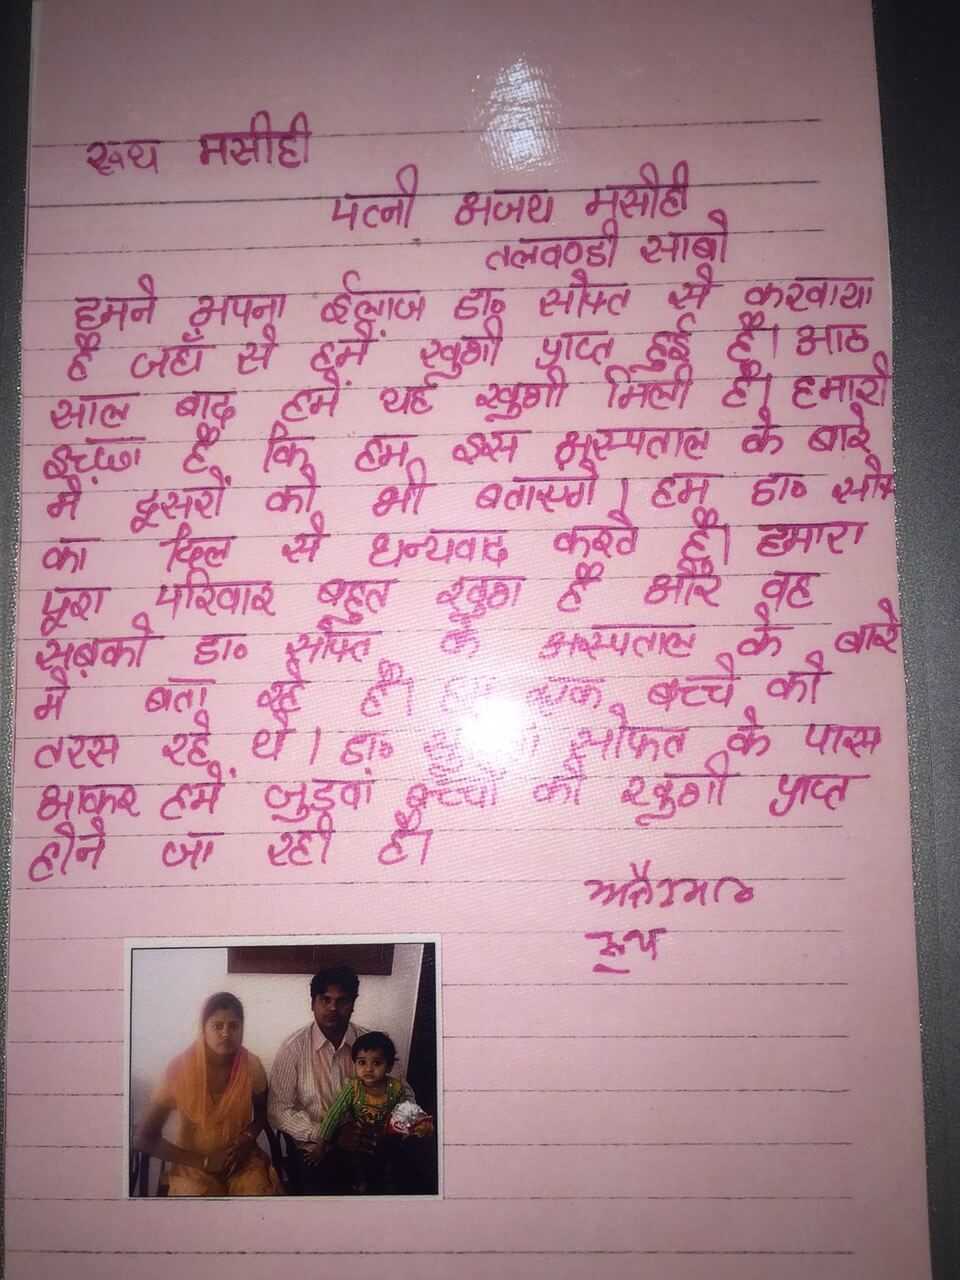 रूथ मसीही
पत्नी अजय मसीही
तलवण्डी साबो
हमने अपना ईलाज डा० सोफत से करवाया
है जहाँ से हमें खुशी प्राप्त हुई है। आठ
साल बाद हमें यह खुशी मिली है। हमारी
इच्छा है कि हम इस अस्पताल के बारे
में दूसरों को भी बताएगे। हम डा०
का दिल से धन्यवाद करते हैं। हमारा
पूरा परिवार बहुत खुश है और वह
सबको डा० सोफत के अस्पताल के बारे
में बता रहे हैं। एक बच्चे को
तरस रहे थे। डा० सोफत के पास
आकर हमें जुड़वां बच्चों की खुशी प्राप्त
होने जा रही है।
रूथ